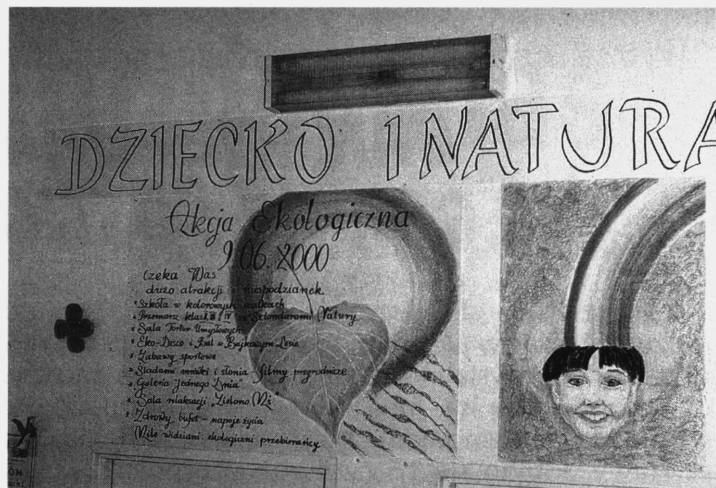 DZIECKO I NATURA
Akcja Ekologiczna
9.06.2000
Czeka Was
dużo atrakcji i niespodzianek
Szkoła w kolorowych
Przemarsz klas III i IV ze Sztandarami Natury
Sala Tortur Umysłowych
Eko-Disco i Bal w Bajkowym Lesie
Zabawy sportowe
Śladami mrówki i słonia - filmy przyrodnicze
Galeria "Jednego Dnia"
Sala relaksacji "Zielono Mi"
Zdrowy bufet - napoje życia
Mile widziani ekologiczni przebierańcy